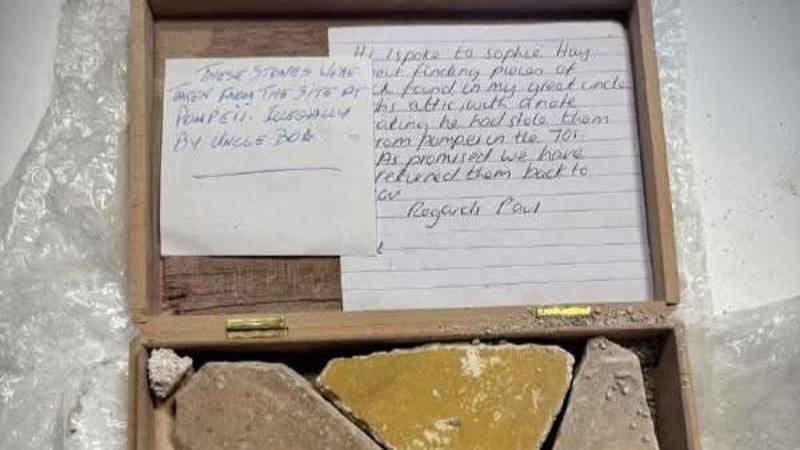 THESE STONES WERE
TAKEN FROM THE SITE AT
POMPEII. ILLEGALLY
BY UNCLE BOA.
Hi I spoke to sophie Hay
out finding pieces of
found in my great uncle
attic with a note
ating he had stole them
rom pompei in the 70s.
As promised we have
returned them back to
ou
Regards Paul